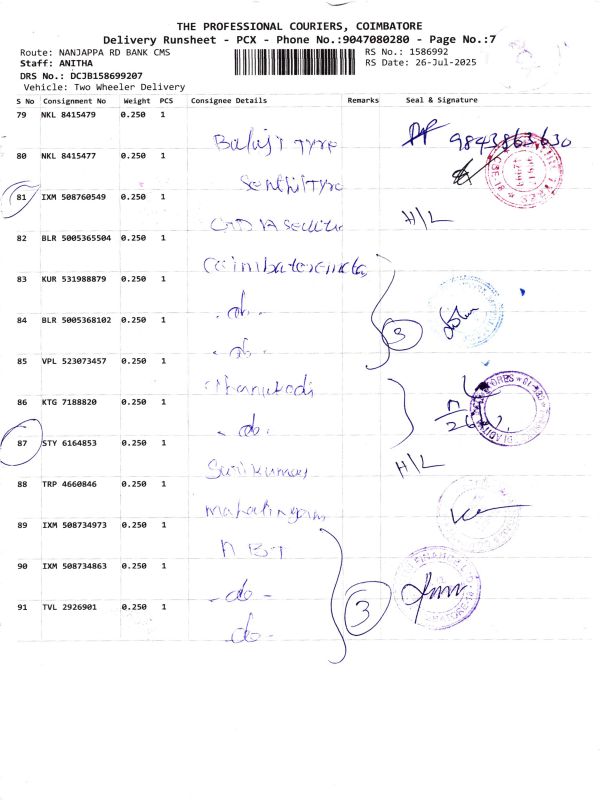 THE PROFESSIONAL COURIERS, COIMBATORE
Delivery Runsheet - PCX - Phone No.:9047080280 - Page No.:7
Route: NANJAPPA RD BANK CMS
RS No.: 1586992
Staff: ANITHA
RS Date: 26-Jul-2025
DRS No.: DCJB158699207
Vehicle: Two Wheeler Delivery
S No Consignment No Weight PCS Consignee Details Remarks Seal & Signature
79 NKL 8415479 0.250 1
Balaji Tyre 9843863630
80 NKL 8415477 0.250 1
Senthil Tyre
81 IXM 508760549 0.250 1
H/L
82 BLR 5005365504 0.250 1
Coimbatore
83 KUR 531988879 0.250 1
- do -
3
84 BLR 5005368102 0.250 1
- do -
85 VPL 523073457 0.250 1
86 KTG 7188820 0.250 1
- do -
87 STY 6164853 0.250 1
H/L
88 TRP 4660846 0.250 1
89 IXM 508734973 0.250 1
90 IXM 508734863 0.250 1
- do -
3
91 TVL 2926901 0.250 1
- do -